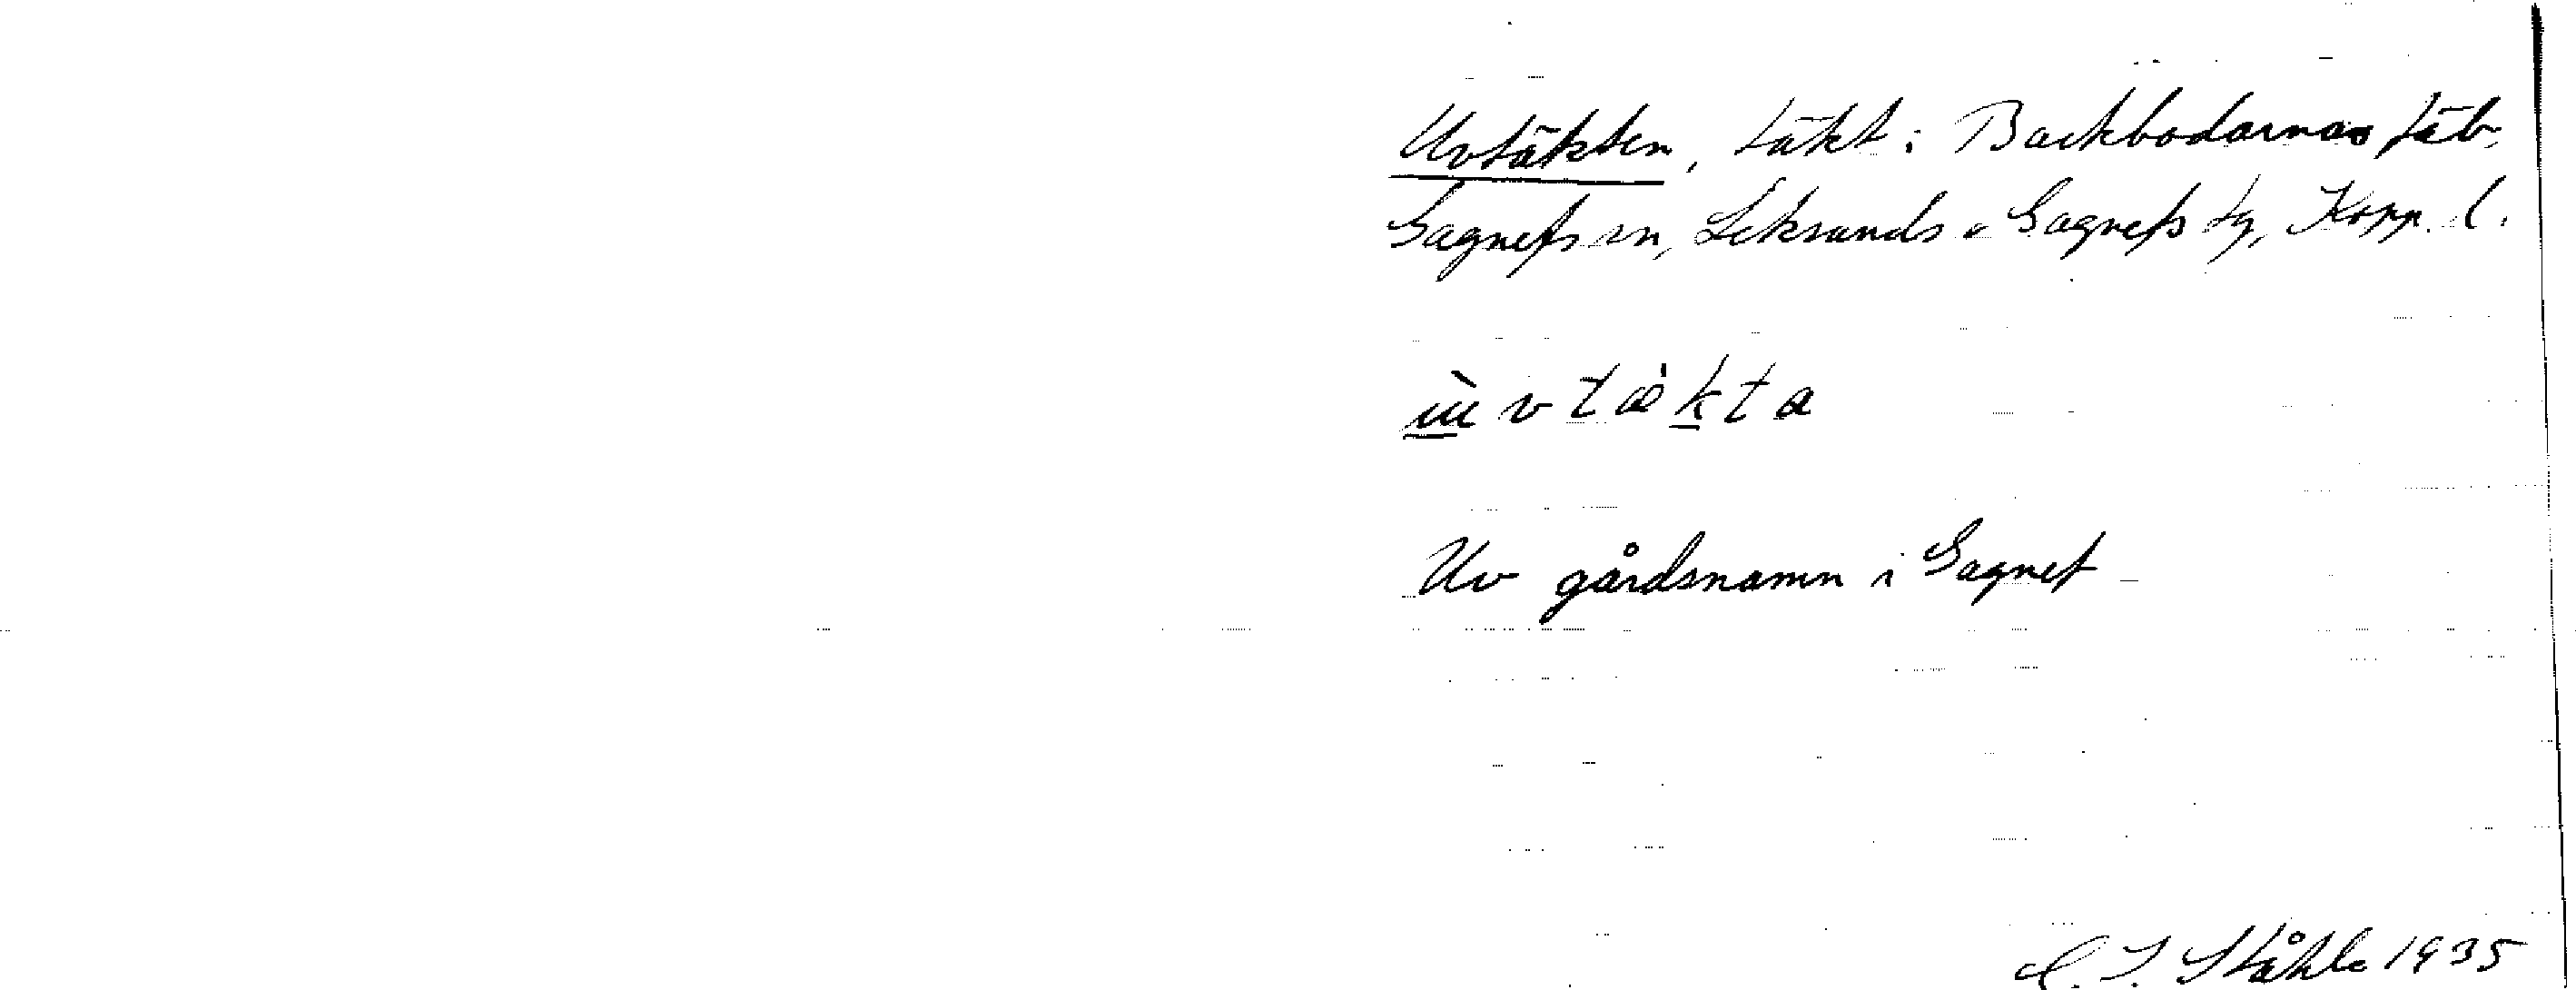 Uvtäkten, täkt i Backbodarnas fäb.
Gagnefs sn, Leksands o Gagnefs tg, Kopp. l.
ùvtækta
Uv gårdsnamn i Gagnef
C. I. Ståhle 1935